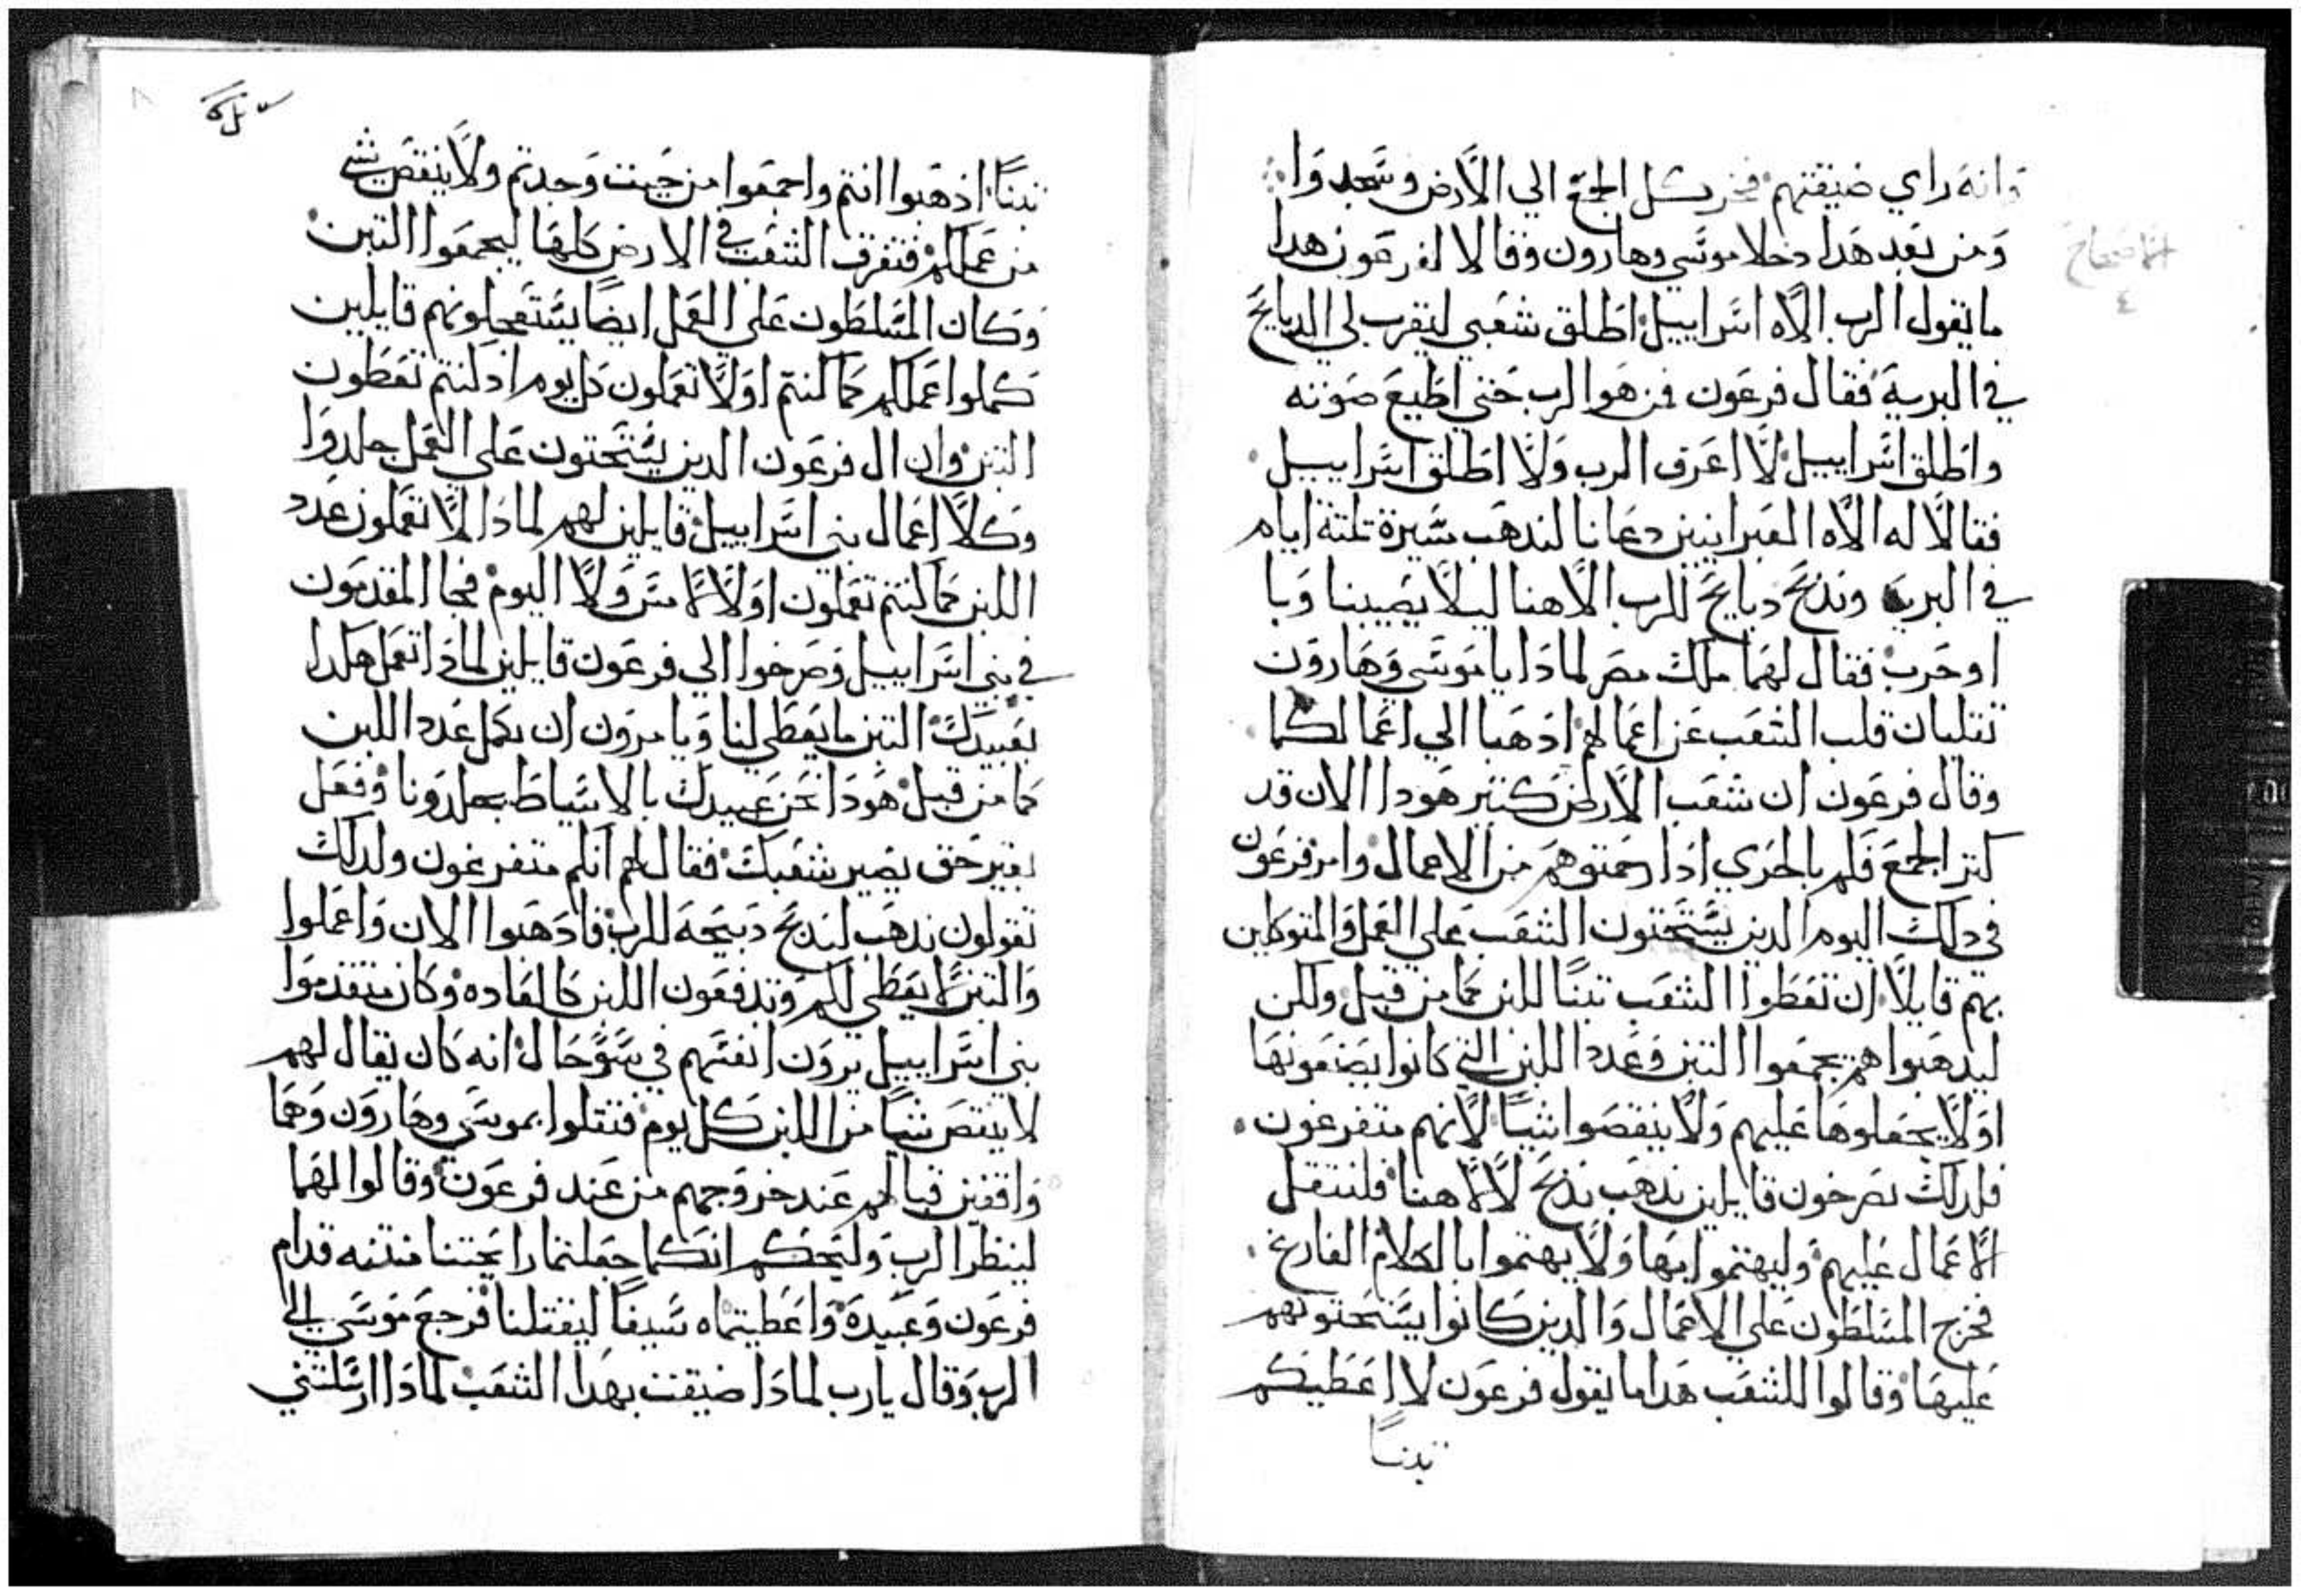 وانه راي ضيقتهم فخر كل الجمع الي الارض وسجدوا
ومن بعد هدا دخلا موسي وهارون وقالا لفرعون هدا
ما يقول الرب الاه اسراييل اطلق شعبي ليقرب لي الدبايح
في البرية فقال فرعون فمن هو الرب حتي اطيع صوته
واطلق اسراييل لا اعرف الرب ولا اطلق اسراييل
فقالا له الاه العبرانيين دعانا لندهب سيرة تلتة ايام
في البرية وندبح دبايح للرب الاهنا ليلا يصيبنا وبا
او حرب فقال لهما ملك مصر لمادا يا موسي وهارون
تقلبان قلب الشعب عن اعمالهم ادهبا الي اعمالكما
وقال فرعون ان شعب الارض كتير هودا الان قد
كتر الجمع فلم بالحري ادا رحمتوهم من الاعمال وامر فرعون
في دلك اليوم الدين يستحتون الشعب علي العمل والمتوكلين
بهم قايلا ان تعطوا الشعب تبنا للبن كما من قبل ولكن
ليدهبوا هم يجمعوا التبن وعدد اللبن التي كانوا يصنعونها
اولا يجعلوها عليهم ولا ينقصوا شيا لانهم متفرغون
فلدلك يصرخون قايلين ندهب ندبح لالاهنا فلتتقل
الاعمال عليهم وليهتموا بها ولا يهتموا بالكلام الفارغ
فخرج المسلطون علي الاعمال والدين كانوا يستحتونهم
عليها وقالوا للشعب هدا ما يقول فرعون لا اعطيكم
تبنا
تبنا ادهبوا انتم واجمعوا من حيت وجدتم ولا ينقص شي
من عملكم فتفرق الشعب في الارض كلها ليجمعوا التبن
وكان المسلطون علي العمل ايضا يستعجلونهم قايلين
كملوا عملكم كما كنتم اولا تعملون كل يوم اد كنتم تعطون
التبن وان ال فرعون الدين يستحتون علي العمل جلدوا
وكلا اعمال بني اسراييل قايلين لهم لمادا لا تعملون عدد
اللبن كما كنتم تعملون اولا لا امس ولا اليوم فجا المقدمون
في بني اسراييل وصرخوا الي فرعون قايلين لمادا تعمل هكدا
بعبيدك التبن ما يعطي لنا ويامرون ان يكمل عدد اللبن
كما من قبل هودا نحن عبيدك بالاسياط يجلدونا وفعل
بغير حق يصير بشعبك فقال لهم انكم متفرغون ولدلك
تقولون ندهب لندبح دبيحه للرب فادهبوا الان واعملوا
والتبن لا يعطي لكم وتدفعون اللبن كالعاده وكان متقدموا
بني اسراييل يرون انفسهم في سو حال انه كان يقال لهم
لا ينقص شيا من اللبن كل يوم فتقلوا بموسي وهارون وهما
واقفين قبالهم عند خروجهم من عند فرعون وقالوا لهما
لينظر الرب وليحكم انكما جعلتما رايحتنا منتنه قدام
فرعون وعبيده واعطيتماه سيفا ليقتلنا فرجع موسي الي
الرب وقال يا رب لمادا ضيقت بهدا الشعب لمادا ارسلتني